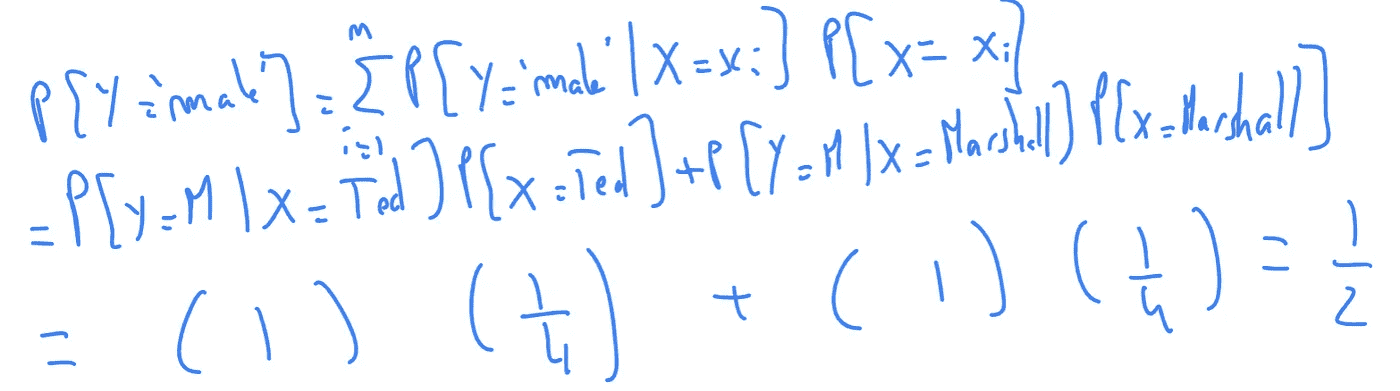 P[Y='male'] = \sum_{i=1}^{n} P[Y='male' | X=x_i] P[X=x_i]
= P[Y=M | X=Ted] P[X=Ted] + P[Y=M | X=Marshall] P[X=Marshall]
= (1) (1/4) + (1) (1/4) = 1/2